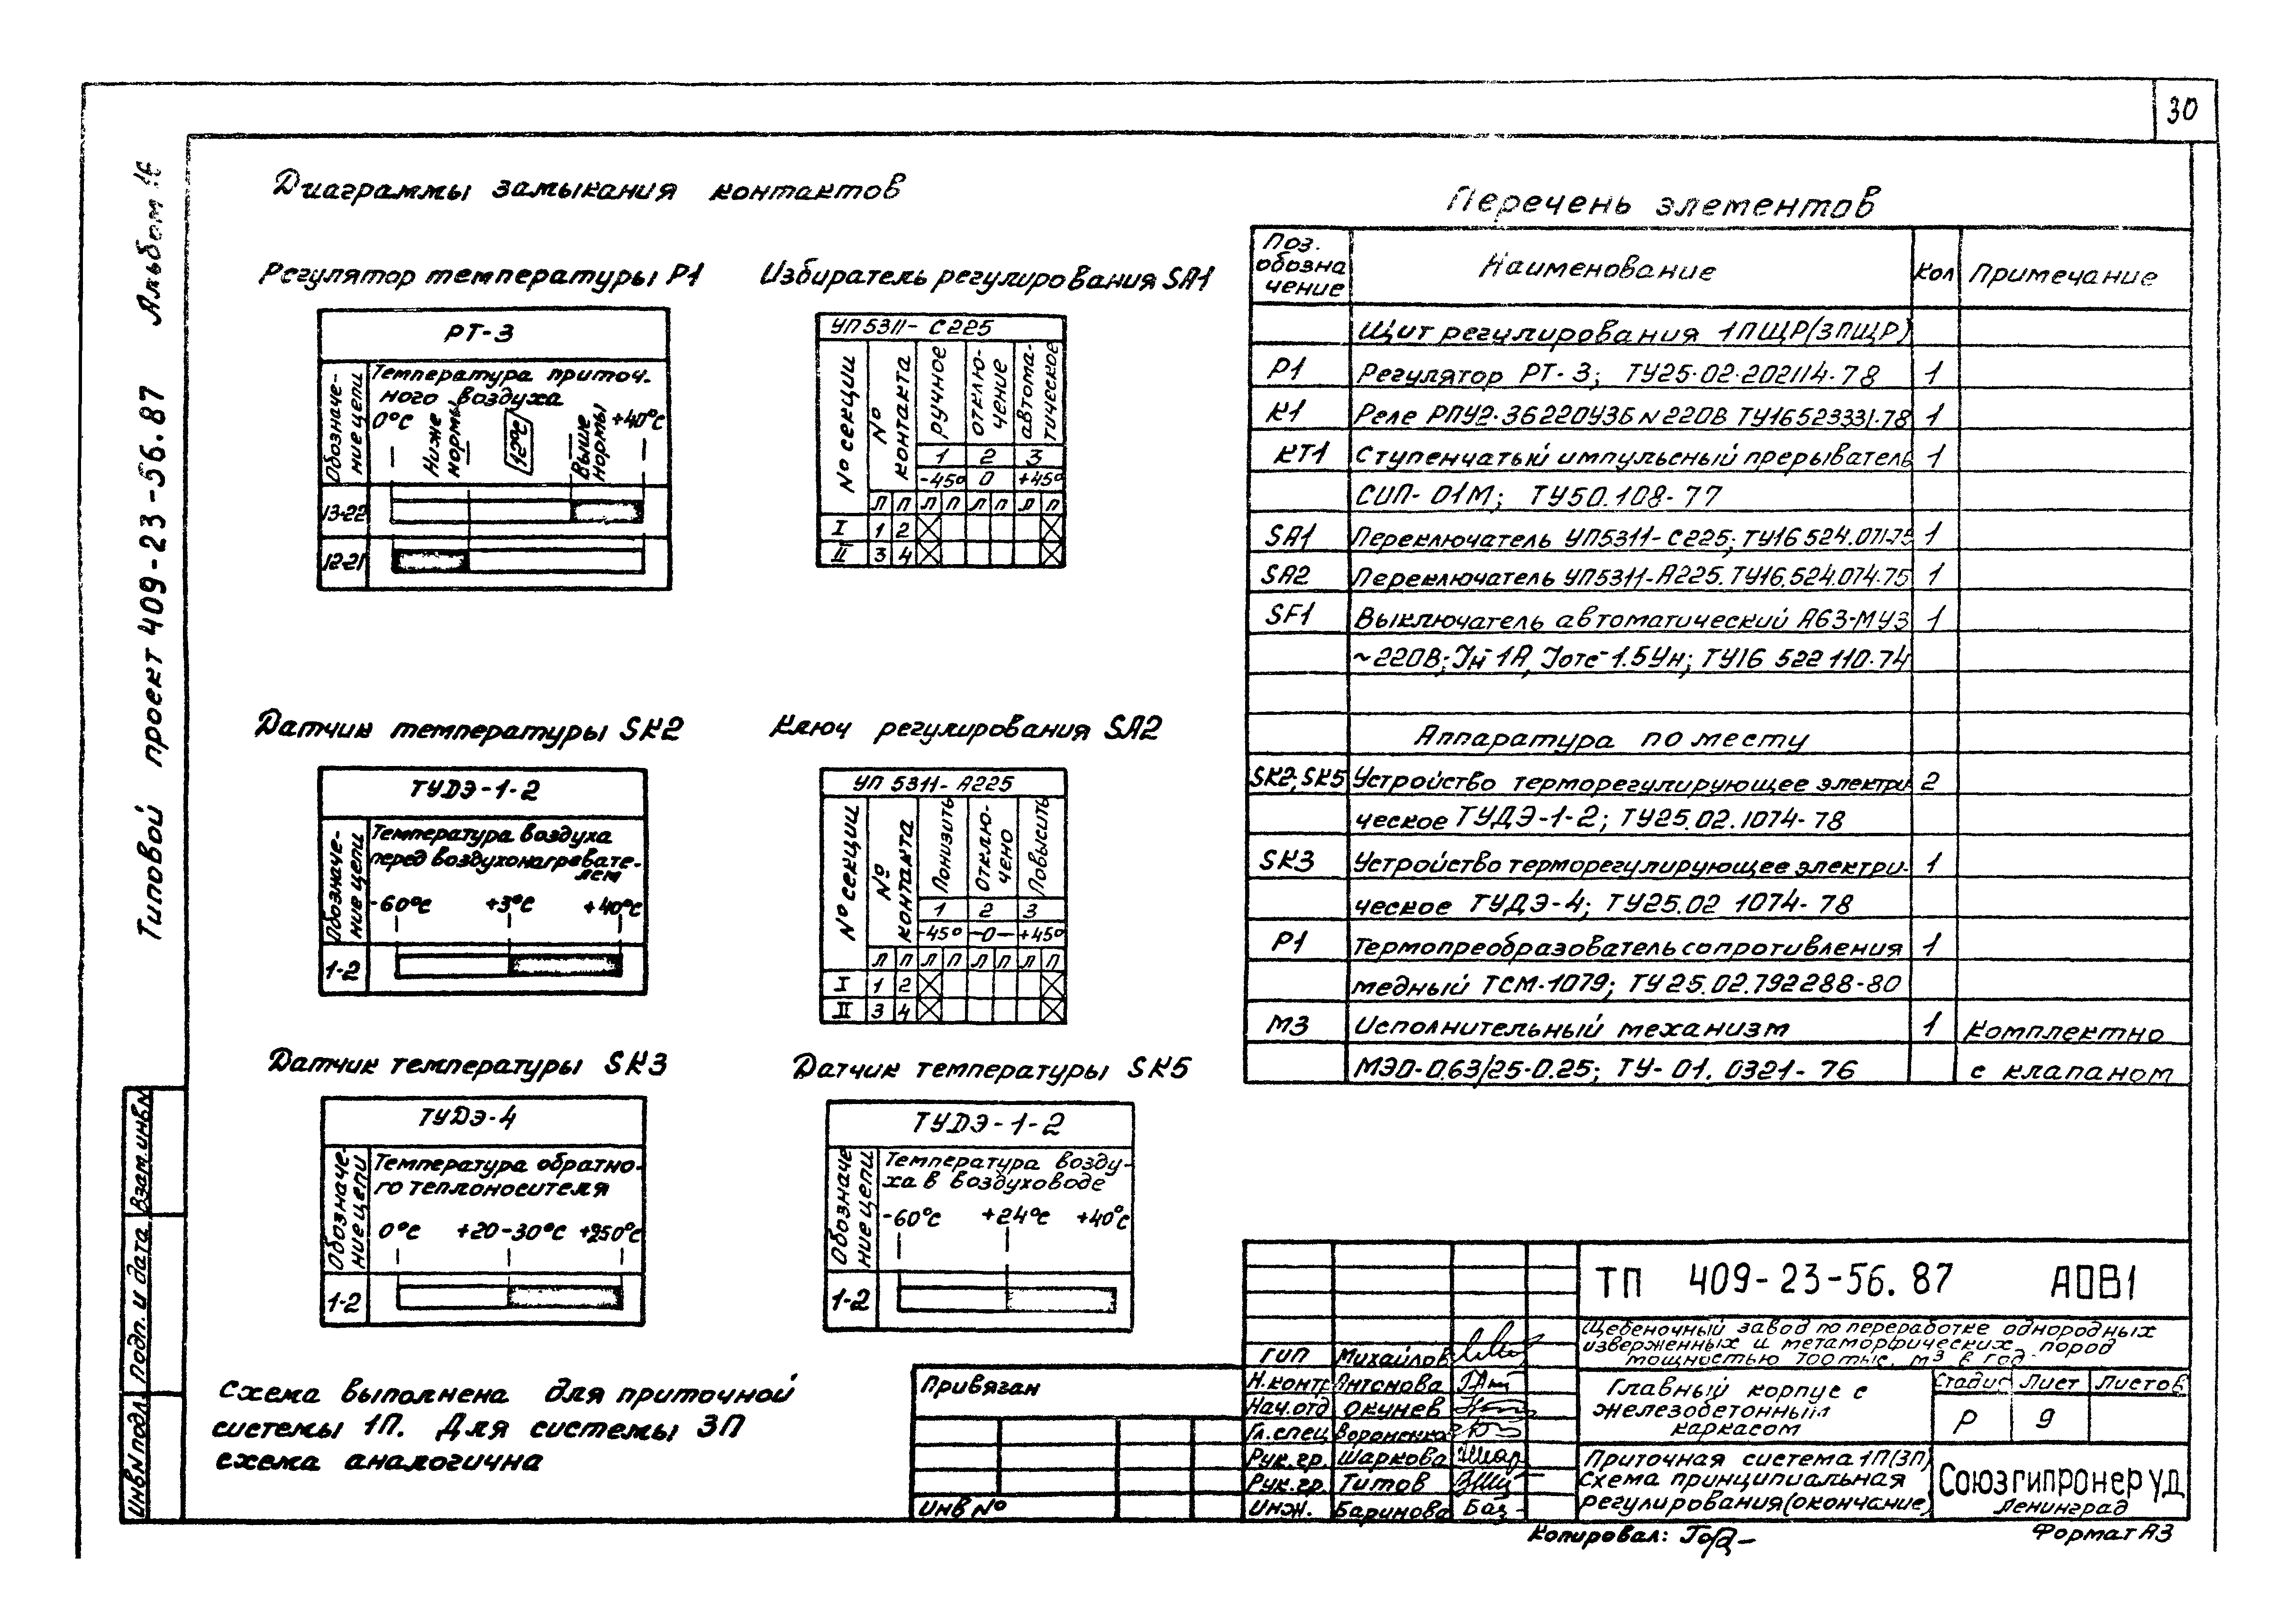 30
Типовой проект 409-23-56.87 Альбом 16
Диаграммы замыкания контактов
Регулятор температуры Р1
РТ-3
Обозначе-
ние цепи
Температура приточ-
ного воздуха
0°С
Ниже
нормы
12°С
Выше
нормы
+40°С
13-22
12-21
Избиратель регулирования SA1
УП5311-С225
№ секции
№
контакта
ручное
отклю-
чение
автома-
тическое
1 2 3
-45° 0 +45°
Л П Л П Л П Л П
I 1 2
II 3 4
Датчик температуры SK2
ТУДЭ-1-2
Обозначе-
ние цепи
Температура воздуха
перед воздухонагревате-
лем
-60°С +3°С +40°С
1-2
Ключ регулирования SA2
УП 5311-А225
№ секции
№
контакта
Понизить
Отклю-
чено
Повысить
1 2 3
-45° -0- +45°
Л П Л П Л П Л П
I 1 2
II 3 4
Датчик температуры SK3
ТУДЭ-4
Обозначе-
ние цепи
Температура обратно-
го теплоносителя
0°С +20-30°С +250°С
1-2
Датчик температуры SK5
ТУДЭ-1-2
Обозначе
ние цепи
Температура возду-
ха в воздуховоде
-60°С +24°С +40°С
1-2
Схема выполнена для приточной
системы 1П. Для системы 3П
схема аналогична
Перечень элементов
Поз.
обозна
чение
Наименование Кол Примечание
Щит регулирования 1ПЩР(3ПЩР)
Р1 Регулятор РТ-3; ТУ25·02·202114·78 1
К1 Реле РПУ2·36220У3Б N 220В ТУ16523331·78 1
КТ1 Ступенчатый импульсный прерыватель 1
СИП-01М; ТУ50.108-77
SA1 Переключатель УП5311-С225; ТУ16 524.071-75 1
SA2 Переключатель УП5311-А225. ТУ16.524.074·75 1
SF1 Выключатель автоматический А63-МУ3 1
~220В; Iн-1А, Iотс-1.5Ун; ТУ16 522 110·74
Аппаратура по месту
SK2; SK5 Устройство терморегулирующее электри- 2
ческое ТУДЭ-1-2; ТУ25.02.1074-78
SK3 Устройство терморегулирующее электри- 1
ческое ТУДЭ-4; ТУ25.02 1074-78
Р1 Термопреобразователь сопротивления 1
медный ТСМ-1079; ТУ25.02.792288-80
М3 Исполнительный механизм 1 комплектно
МЭО-0.63/25-0.25; ТУ-01.0321-76 с клапаном
ТП 409-23-56.87 АОВ1
Щебеночный завод по переработке однородных
изверженных и метаморфических пород
мощностью 700 тыс. м3 в год
ГИП Михайлов
Н.контр Антонова
Нач.отд Окунев
Гл.спец Вороненко
Рук.гр. Шаркова
Рук.гр. Титов
Инж. Баринова
Главный корпус с
железобетонным
каркасом
Стадия Лист Листов
Р 9
Приточная система 1П(3П)
Схема принципиальная
регулирования (окончание)
Союзгипронеруд
Ленинград
Привязан
Инв №
Взам.инв№
Подп. и дата
Инв№подл.
Копировал:
Формат А3